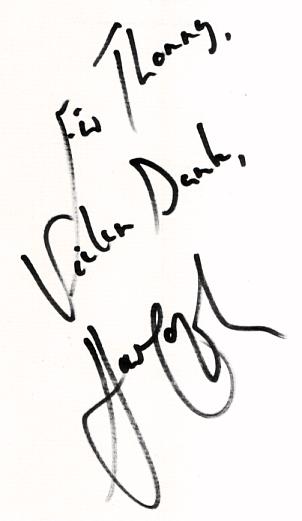 Für Thonny,
Vielen Dank,